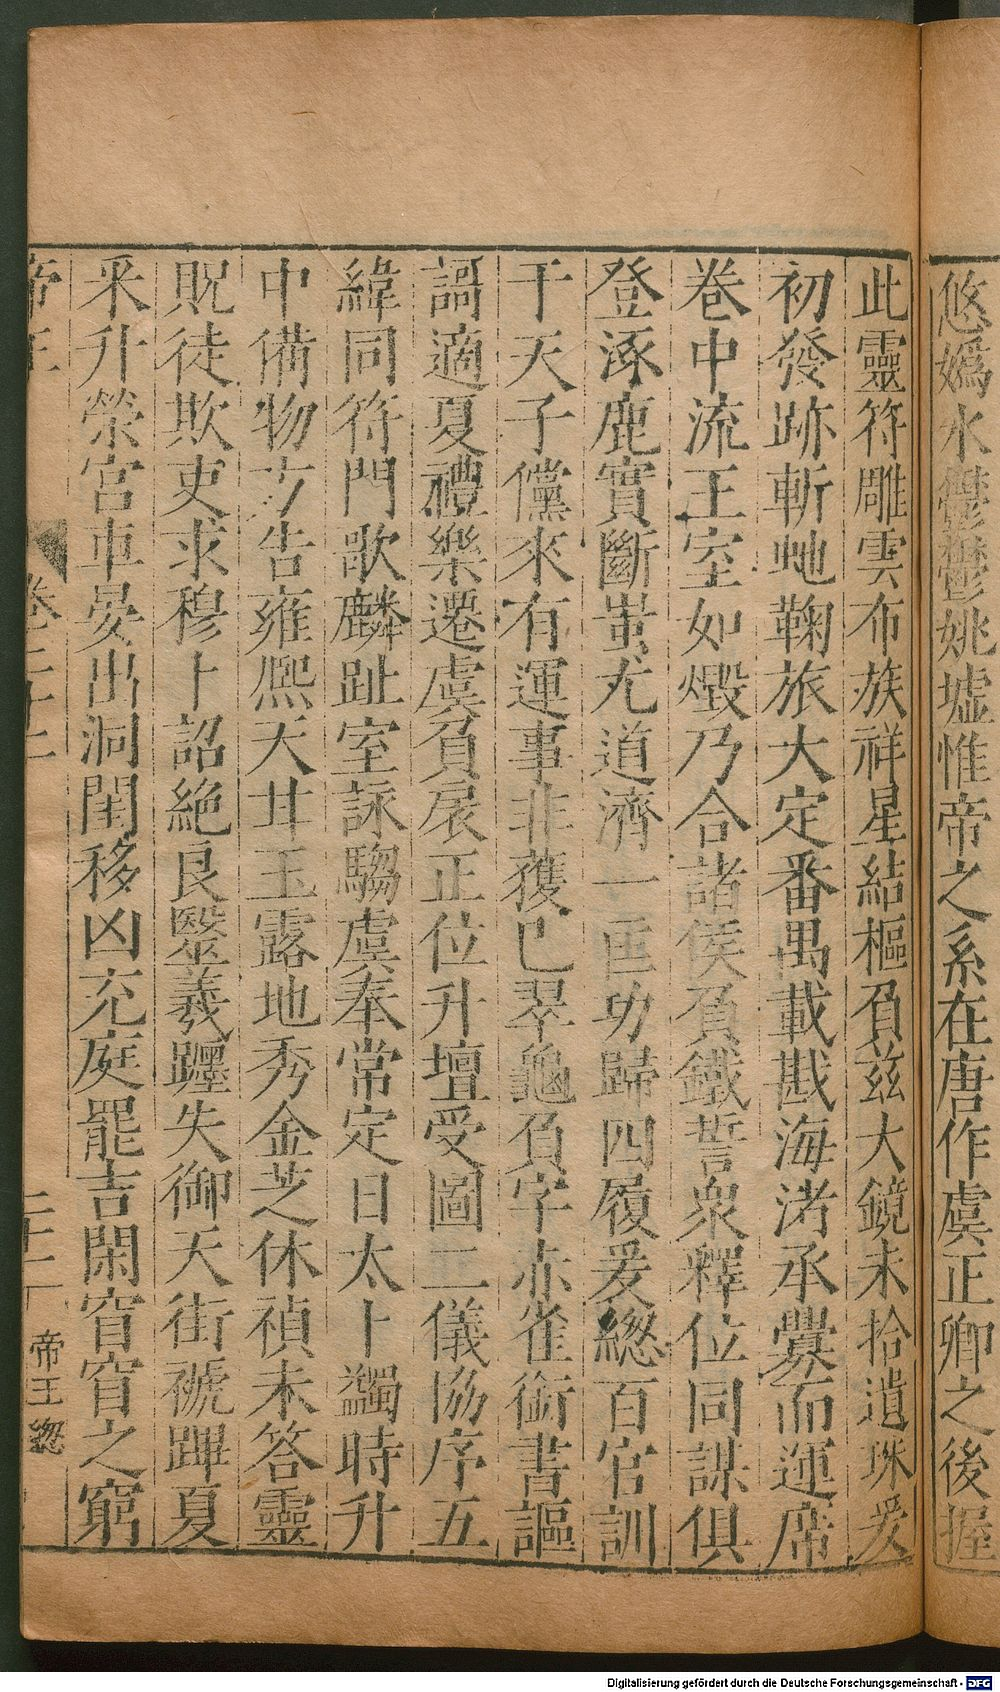 悠嬀水鬱鬱姚墟惟帝之系在唐作虞正卿之後握
此靈符雕雲布族祥星結樞負玆大鏡未拾遺珠爰
初發跡斬虵鞠旅大定番禺載戡海渚承釁而運席
卷中流王室如燬乃合諸侯負鐵誓衆釋位同謀俱
登涿鹿實斷蚩尤道濟一匡功歸四履爰總百官訓
于天子儻來有運事非獲已翠龜負字赤雀銜書謳
謌適夏禮樂遷虞負扆正位升壇受圖二儀協序五
緯同符門歌麟趾室詠騶虞奉常定日太卜蠲時升
中備物方告雍熈天廿玉露地秀金芝休禎未答靈
貺徒欺吏求穆卜詔絶良毉羲躔失御天街禠蹕夏
釆升榮宮車晏出洞閨移凶充庭罷吉閑窅窅之窮
帝王 卷二十二 二十二 帝王總
Digitalisierung gefördert durch die Deutsche Forschungsgemeinschaft - DFG